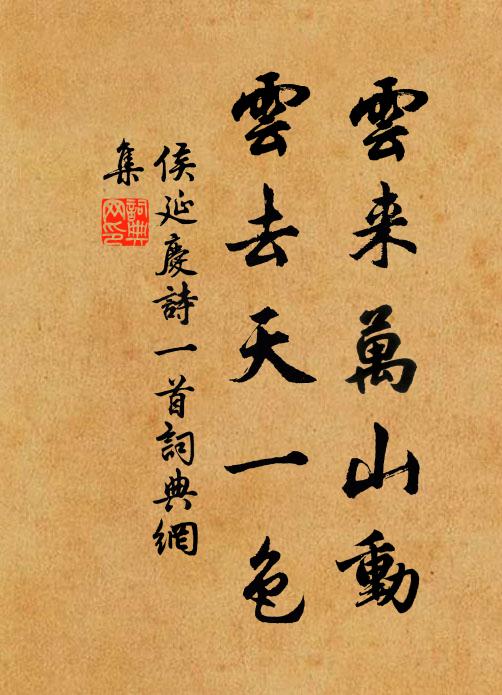 雲来萬山動
雲去天一色
侯延慶詩一首詞典網
集
詞典
网印